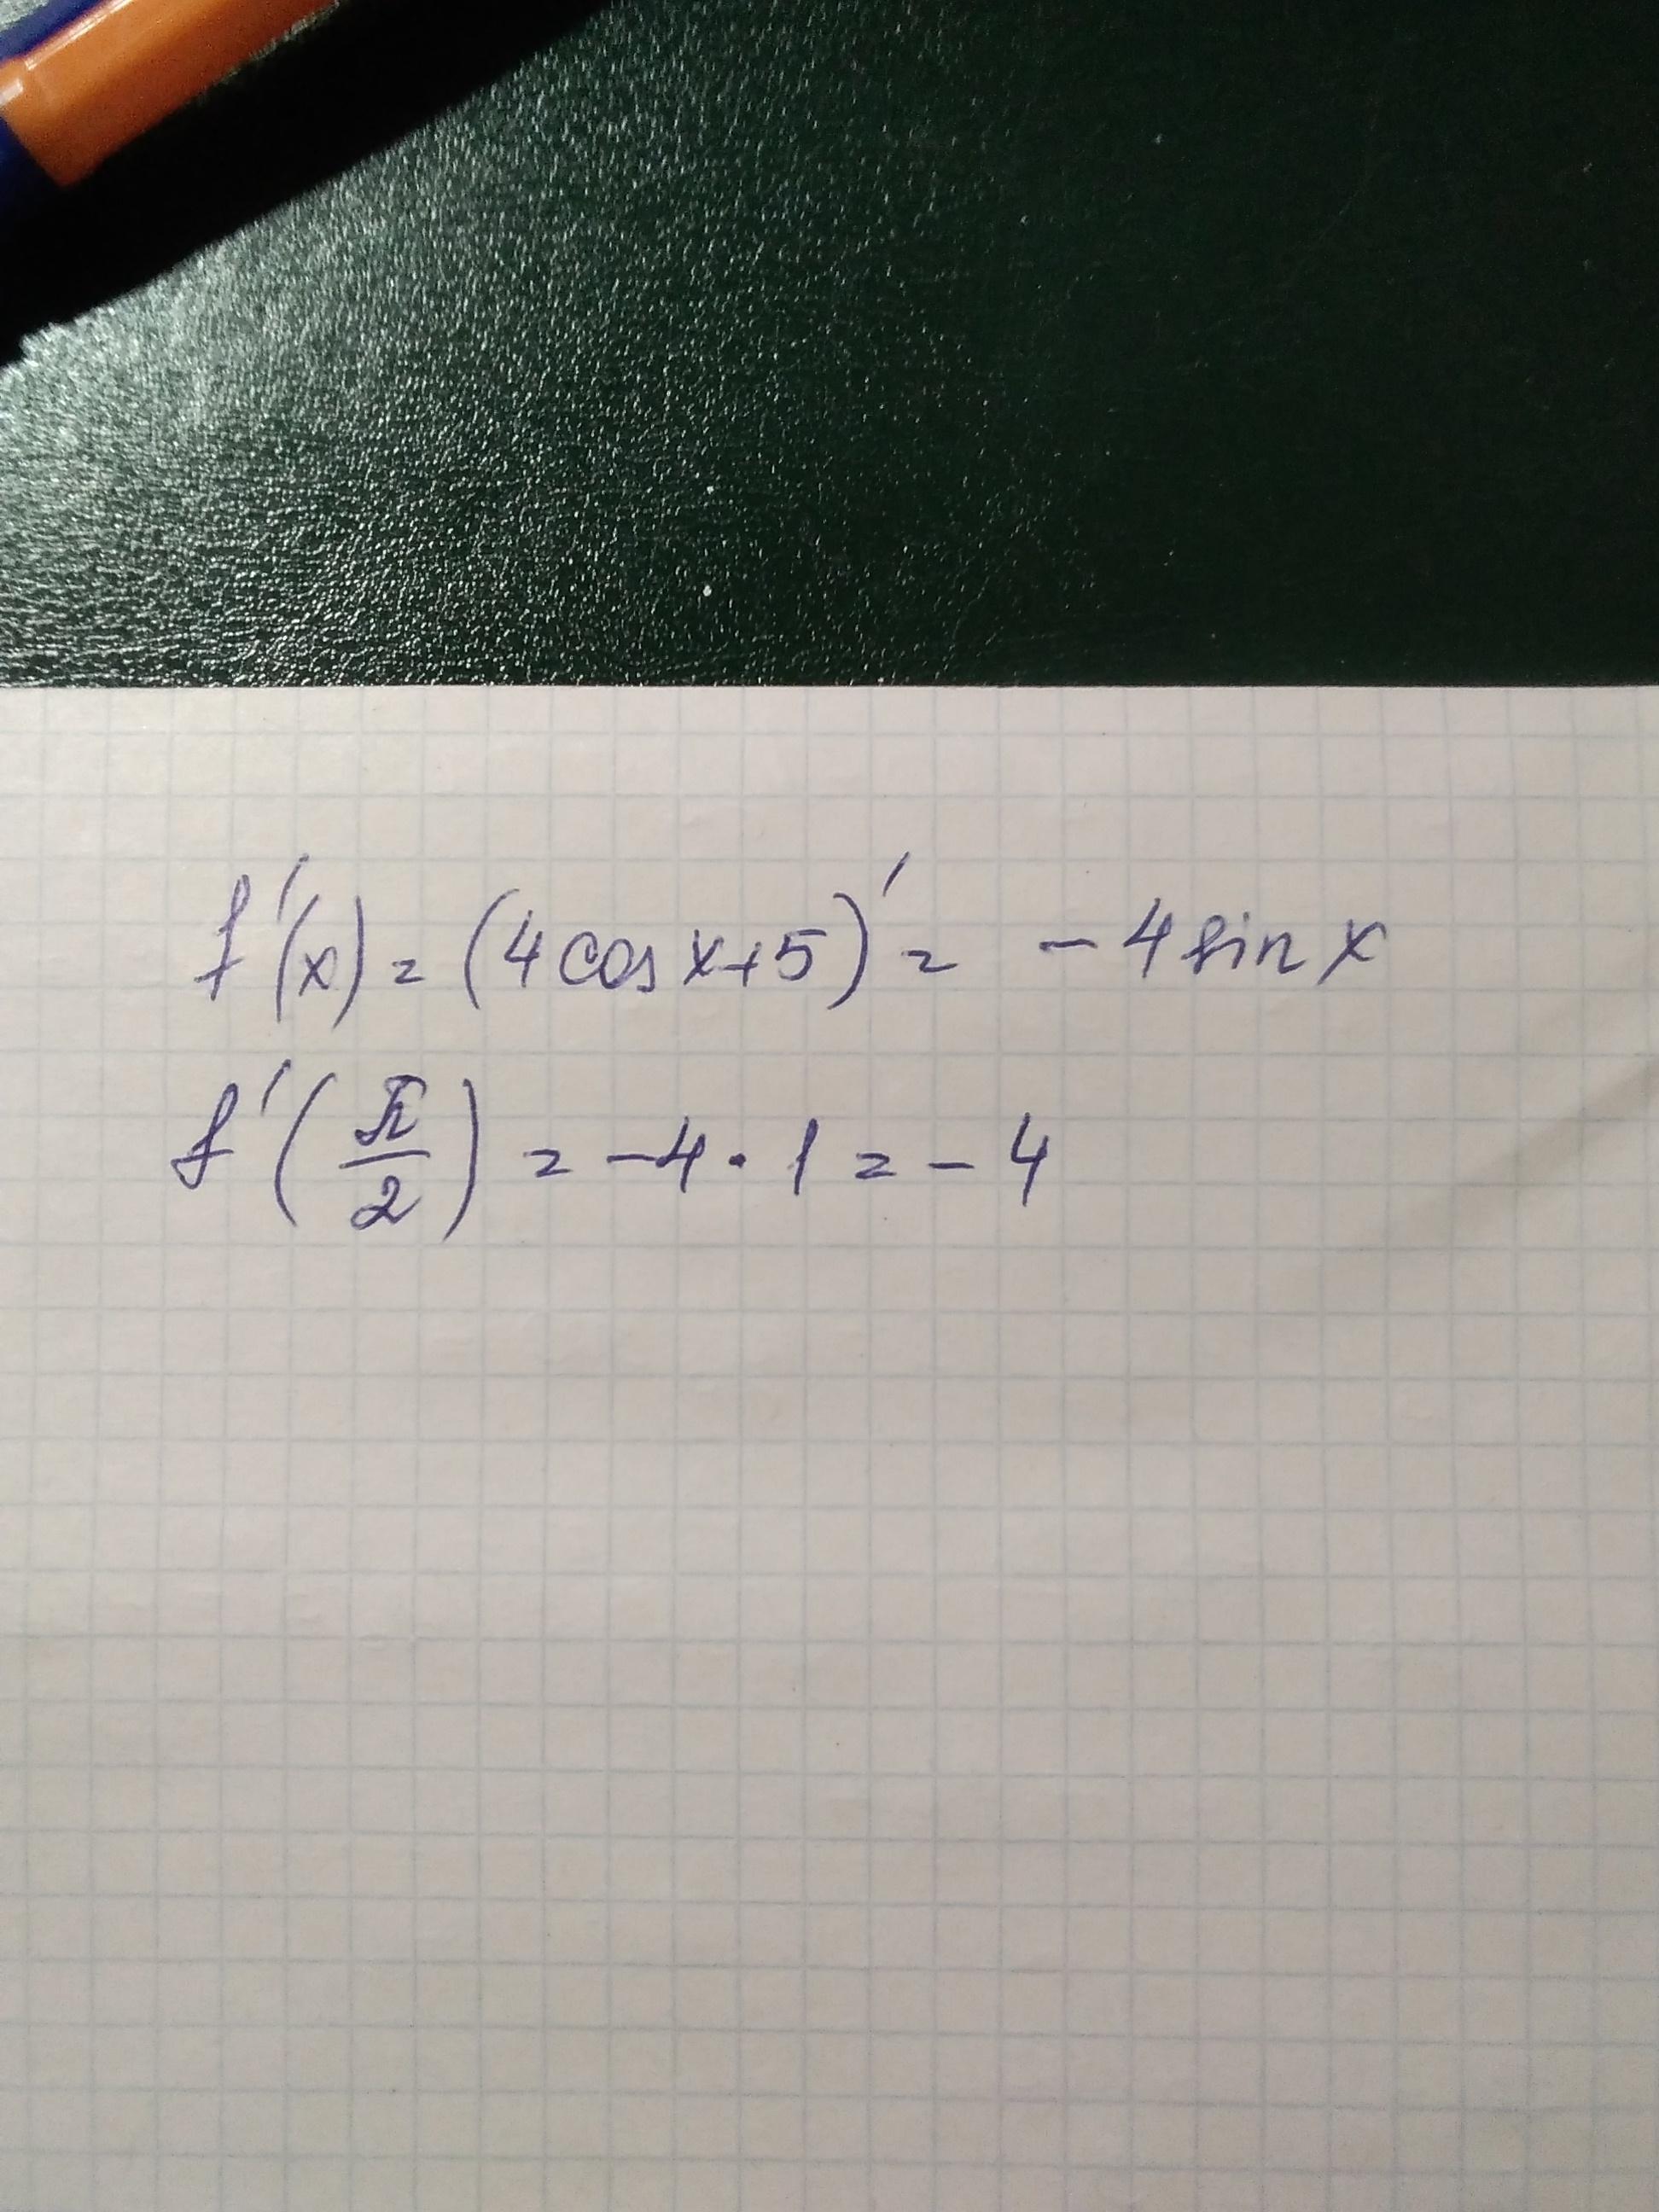 f'(x) = (4cosx+5)' = -4 sin x
f'(π/2) = -4 · 1 = -4